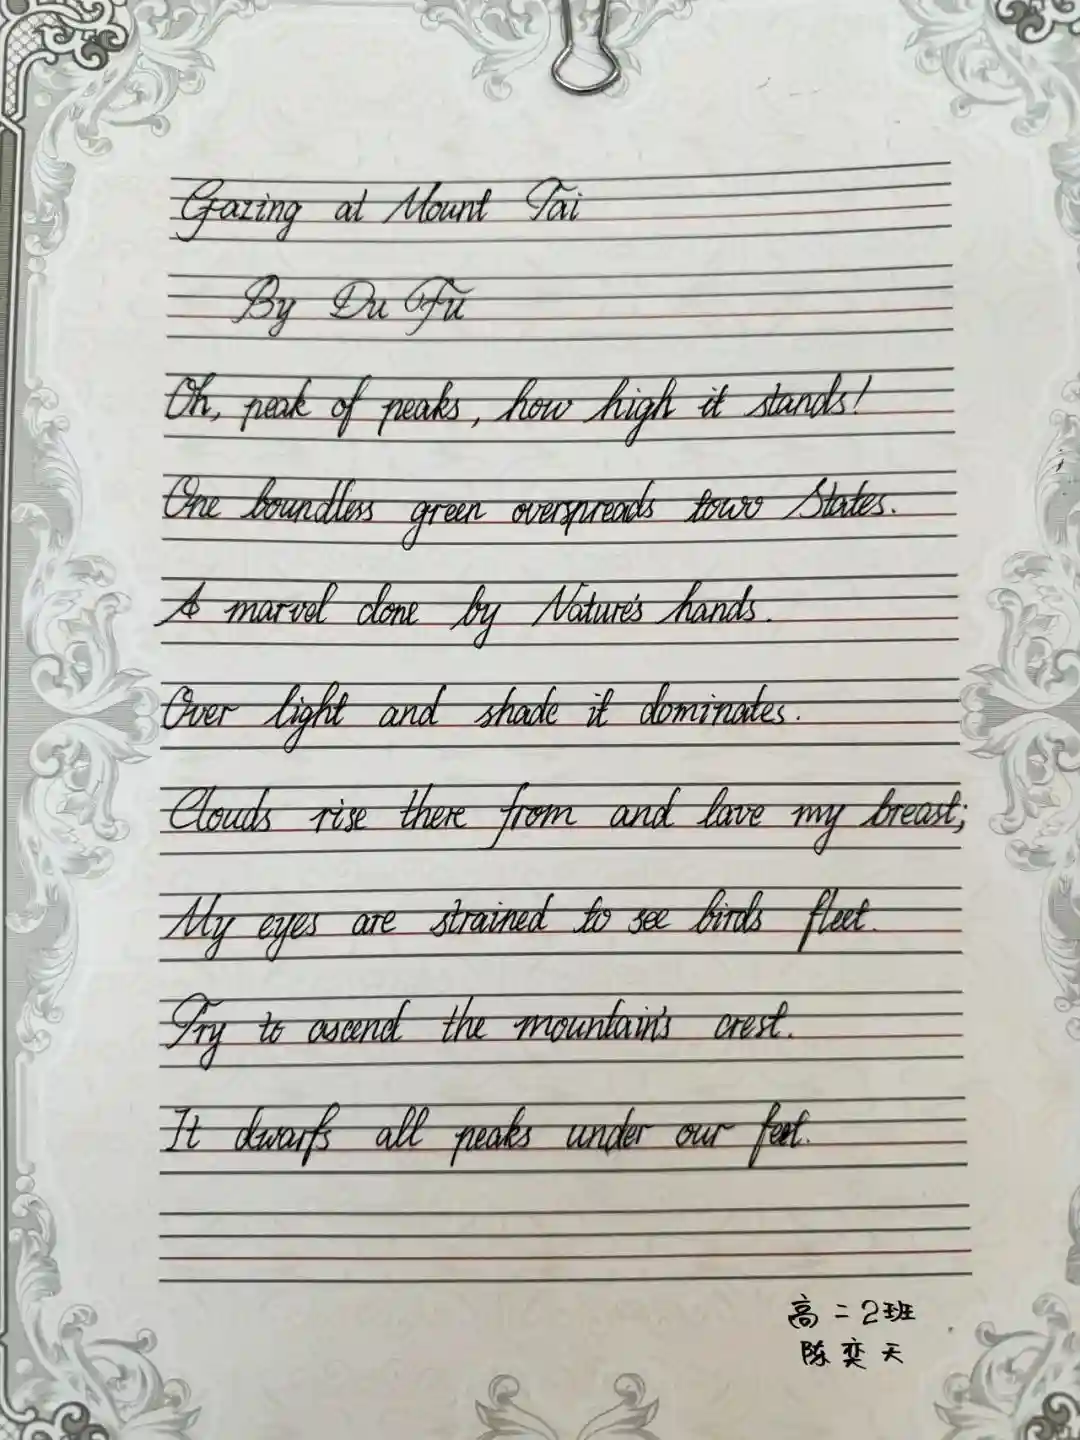 Gazing at Mount Tai
By Du Fu
Oh, peak of peaks, how high it stands!
One boundless green overspreads towo States.
A marvel done by Nature's hands.
Over light and shade it dominates.
Clouds rise there from and lave my breast;
My eyes are strained to see birds fleet.
Try to ascend the mountain's crest.
It dwarfs all peaks under our feet.
高二2班
陈奕天